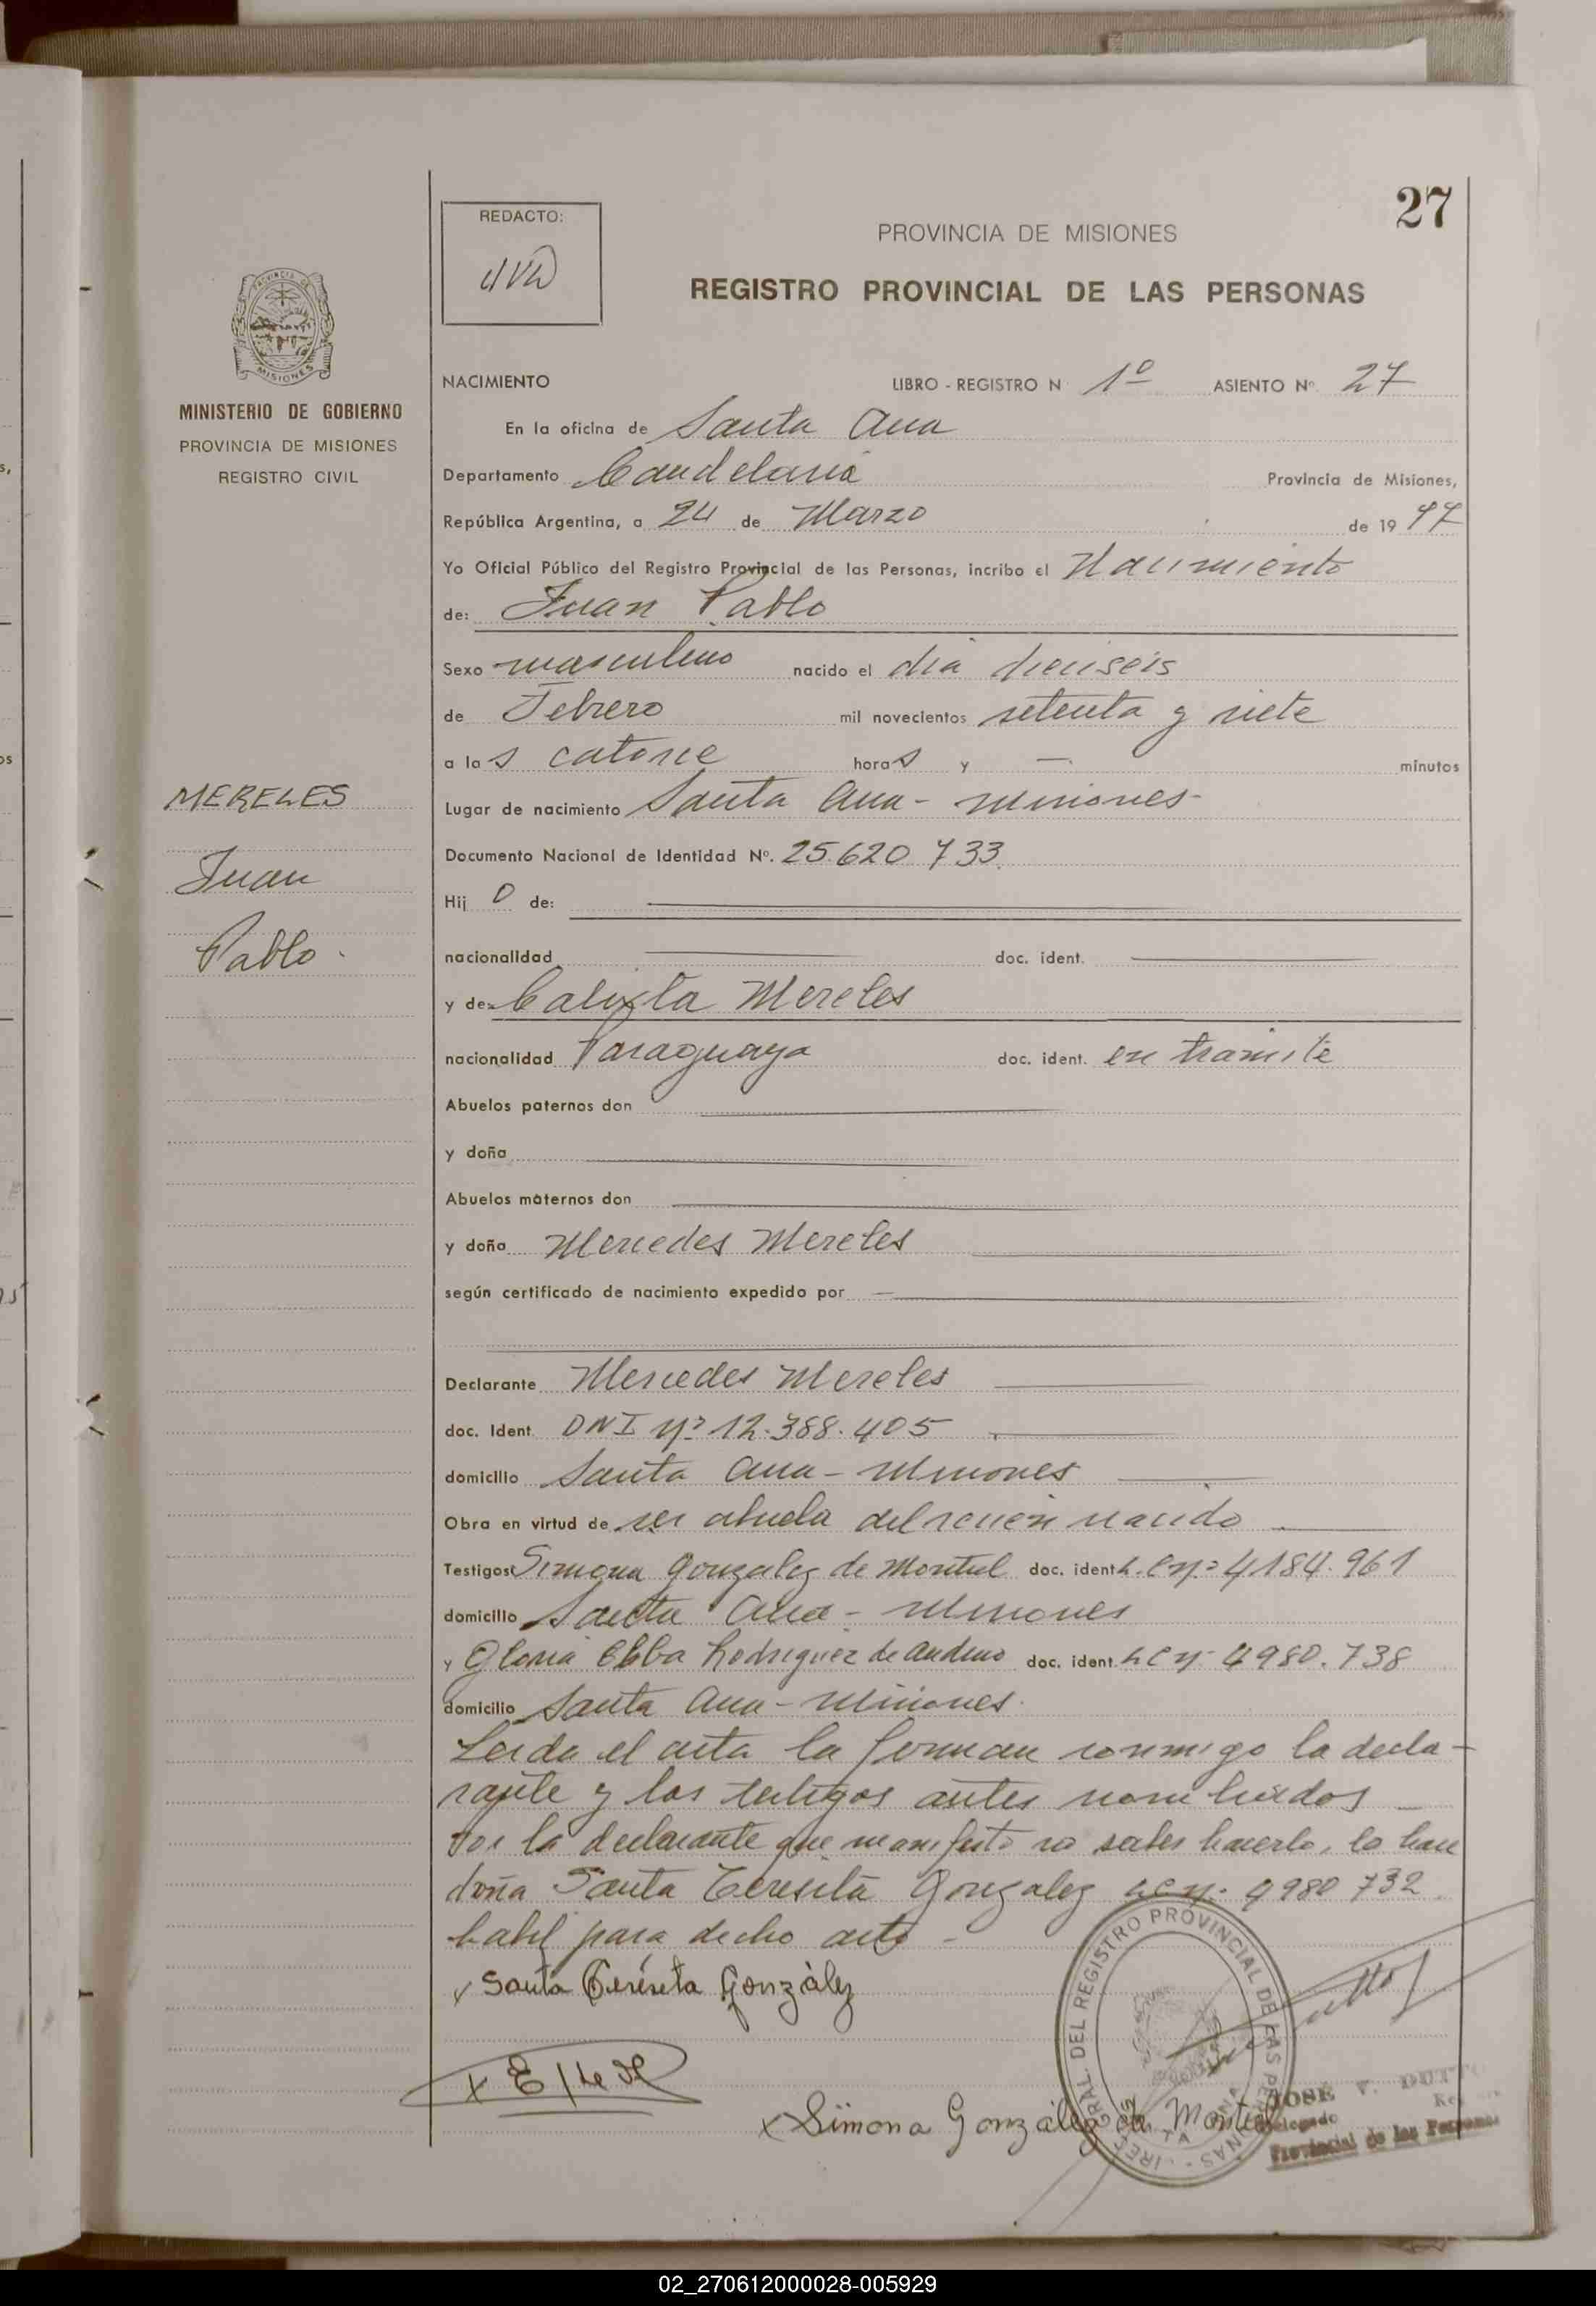 27
REDACTO:
PROVINCIA DE MISIONES
REGISTRO PROVINCIAL DE LAS PERSONAS
PROVINCIA DE
MISIONES
MINISTERIO DE GOBIERNO
PROVINCIA DE MISIONES
REGISTRO CIVIL
NACIMIENTO LIBRO - REGISTRO N 1º ASIENTO Nº 27
En la oficina de Santa Ana
Departamento Candelaria Provincia de Misiones,
República Argentina, a 24 de Marzo de 19 77
Yo Oficial Público del Registro Provincial de las Personas, incribo el Nacimiento
de: Juan Pablo
Sexo masculino nacido el dia dieciseis
de Febrero mil novecientos setenta y siete
a las catorce horas y — minutos
MERELES
Juan
Pablo.
Lugar de nacimiento Santa Ana - Misiones-
Documento Nacional de Identidad Nº. 25.620.733.
Hijo de:
nacionalidad doc. ident.
y de: Calixta Mereles
nacionalidad Paraguaya doc. ident. en tramite
Abuelos paternos don
y doña
Abuelos maternos don
y doña Mercedes Mereles
según certificado de nacimiento expedido por
Declarante Mercedes Mereles
doc. Ident. DNI Nº 12.388.405
domicilio Santa Ana - Misiones
Obra en virtud de ser abuela del recien nacido
Testigos: Simona Gonzalez de Montiel doc. ident L.C Nº 4184.961
domicilio Santa Ana - Misiones
y Gloria Elba Rodriguez de Andino doc. ident. L C Nº 4980.738
domicilio Santa Ana - Misiones.
Leida el acta la firman conmigo la decla-
rante y los testigos antes nombrados
Por la declarante que manifestó no saber hacerlo, lo hace
doña Santa Teresita Gonzalez LC Nº 4980 732
habil para dicho acto -
x Santa Teresita González
x Simona González de Montiel
DEL REGISTRO PROVINCIAL DE LAS PERSONAS
JOSÉ V.
Delegado
Provincial de las Personas
02_270612000028-005929